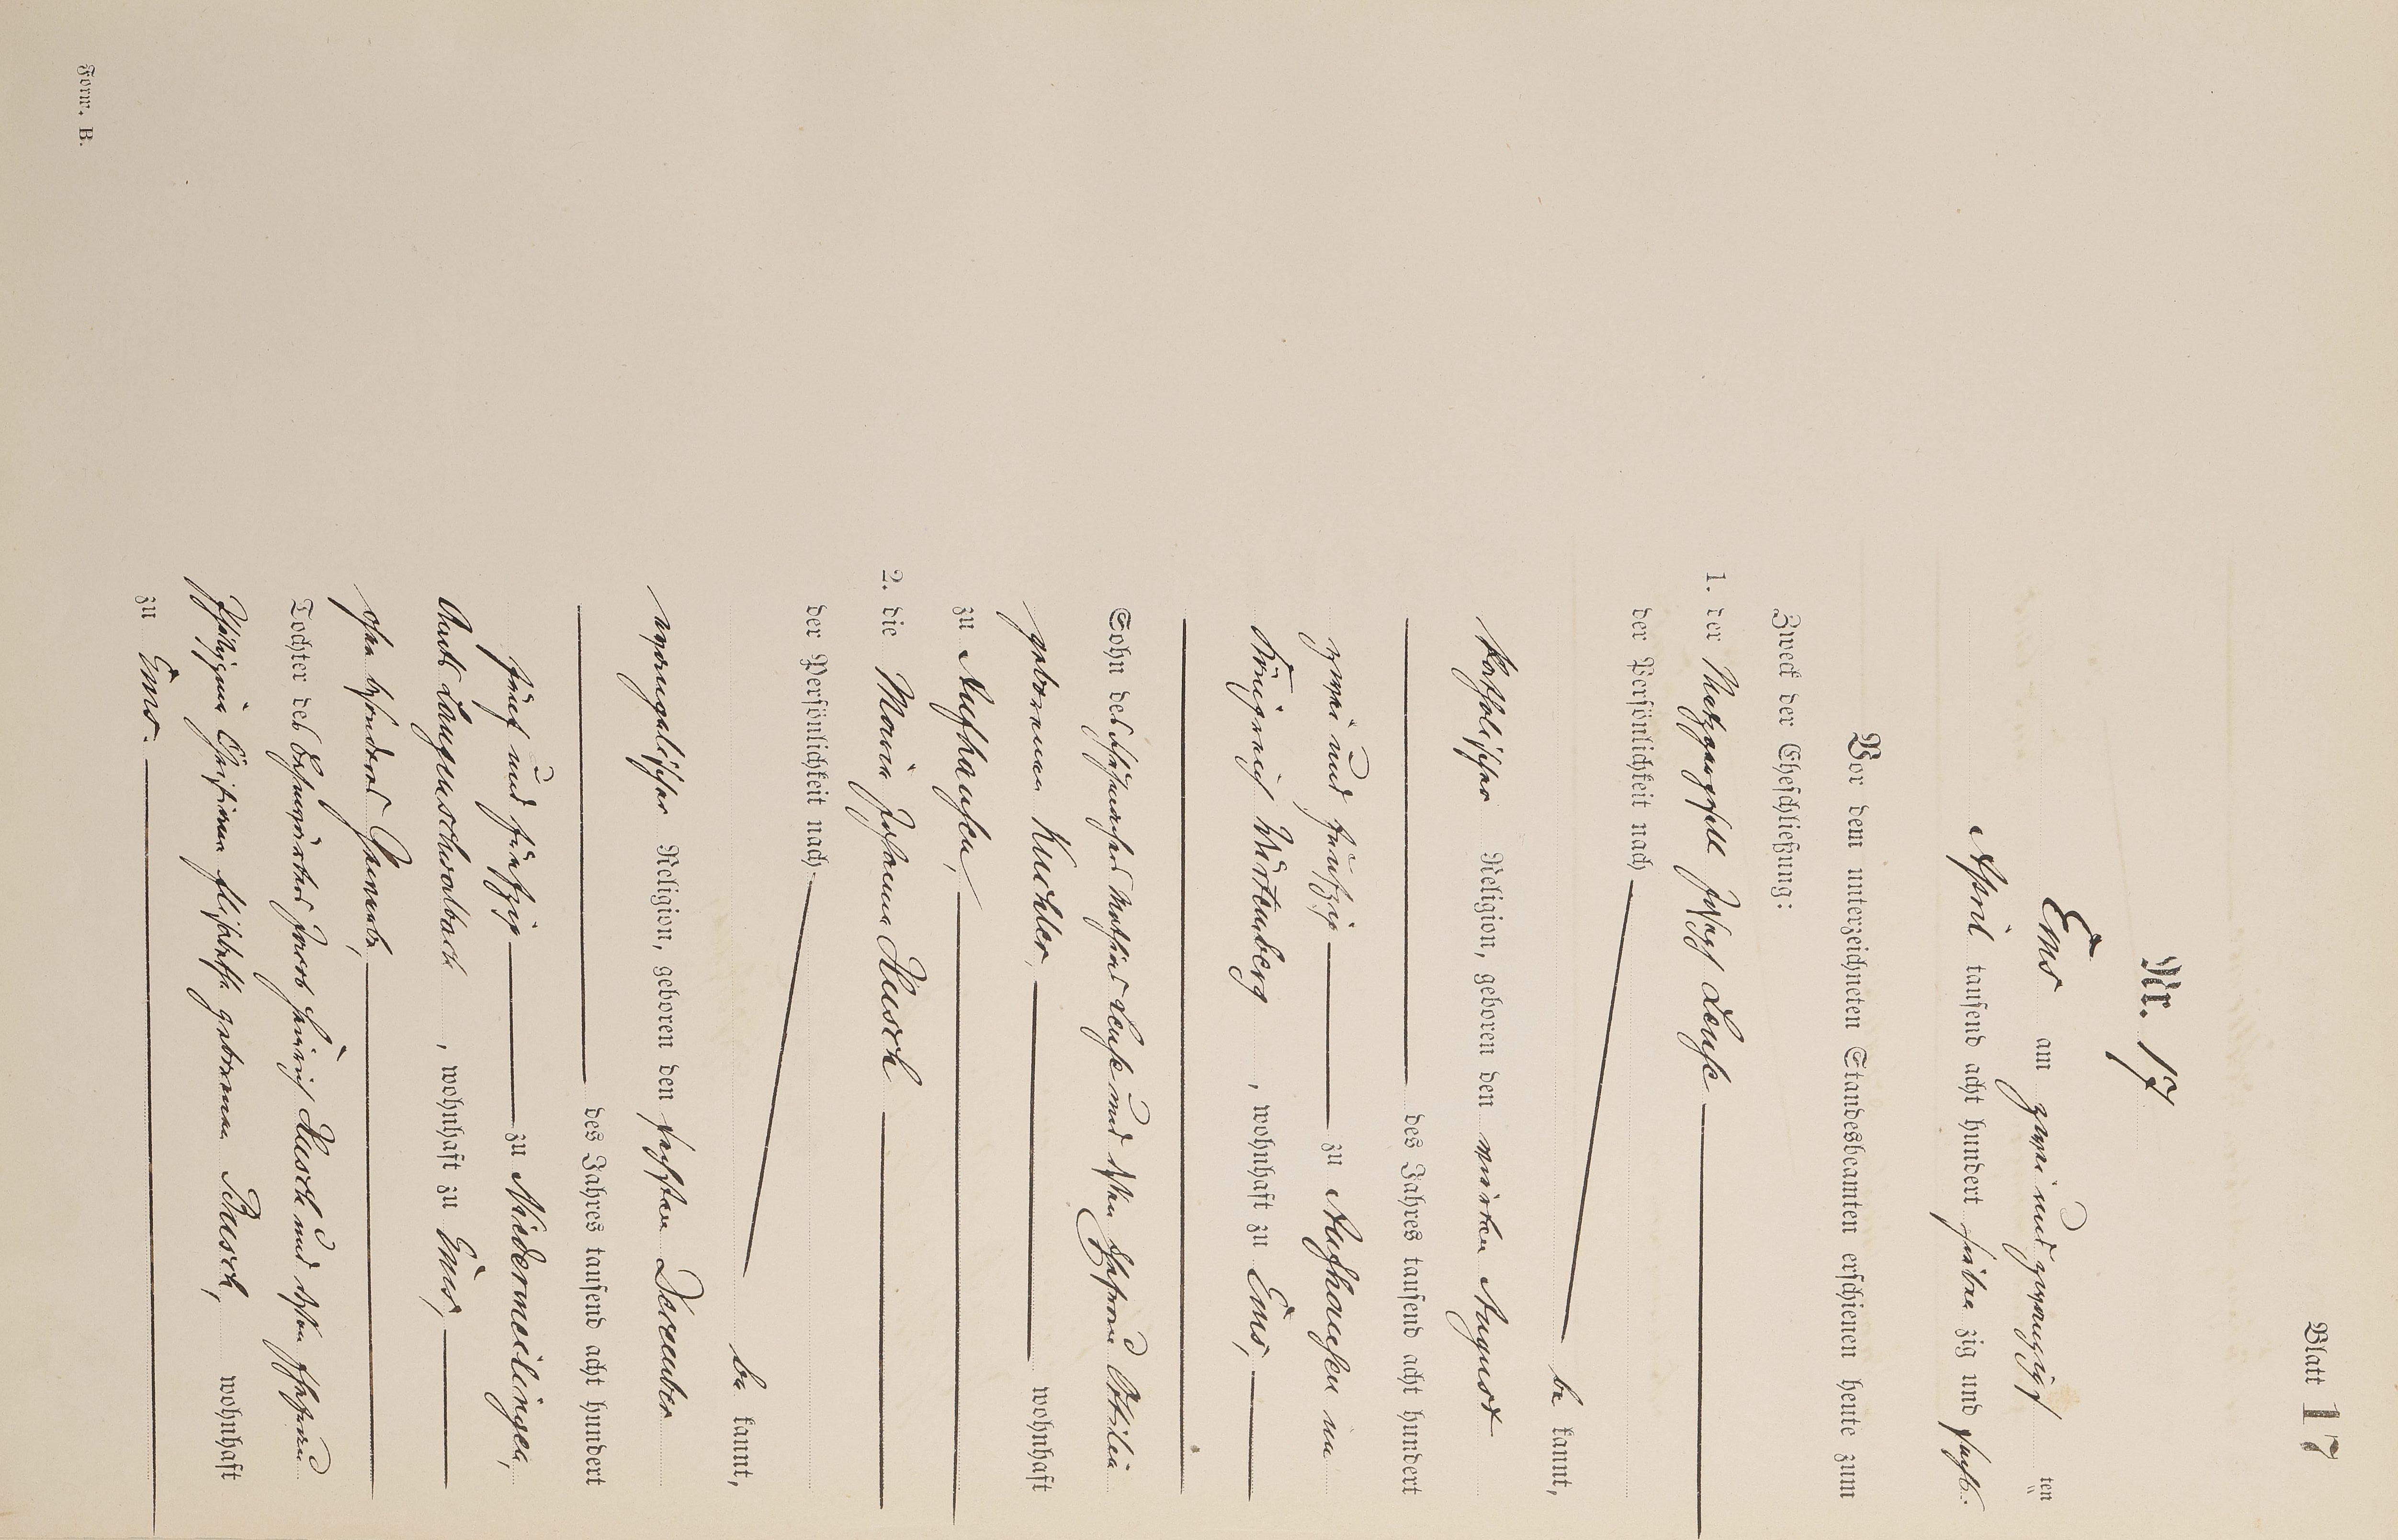 Blatt 17
Nr. 17
Ems am zwei und zwanzigs ten
April tausend acht hundert sieben zig und sechs.
Vor dem unterzeichneten Standesbeamten erschienen heute zum
Zweck der Eheschließung:
1. der Metzgergesell Joseph
der Persönlichkeit nach
be kannt,
katholischer Religion, geboren den vierten August
des Jahres tausend acht hundert
zwei und funfzig zu Aufhausen im
Königreich Würtemberg, wohnhaft zu Ems,
Sohn des Mathias und dessen Ehefrau Ottilia
geborenen Kuchler, wohnhaft
zu Aufhausen,
2. die Maria Johanna Rusch
der Persönlichkeit nach
be kannt,
evangelischer Religion, geboren den sechsten December
des Jahres tausend acht hundert
fünf und funfzig zu Niedermeilingen,
Amts Langenschwalbach, wohnhaft zu Ems,
ohne besonderes Gewerbe,
Tochter des Jacob Heinrich Rusch und dessen Ehefrau
Philippine Christiane Elisabethe geborenen Busch, wohnhaft
zu Ems.
Form. B.